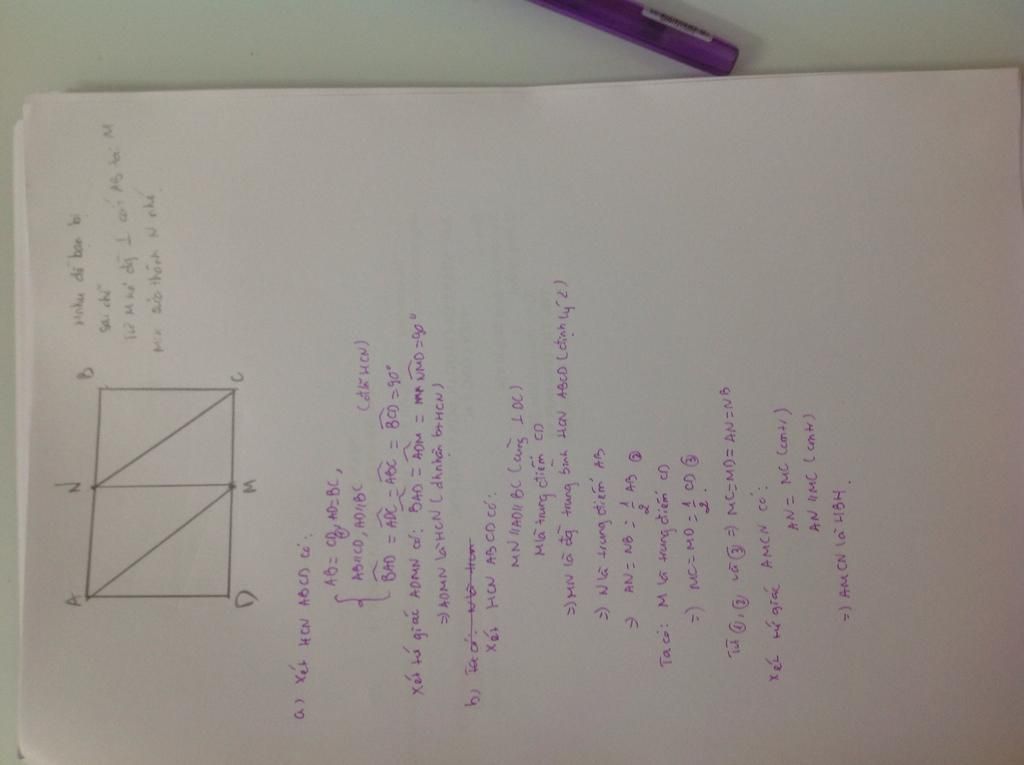 A
N
B
D
M
C
Hình đề bạn bị
sai chỗ
Từ M kẻ đg ⊥ với AB tại M
M sửa thành N nhé
a) Xét HCN ABCD có:
AB = CD, AD = BC,
AB // CD, AD // BC (đl HCN)
BAD = ADC = ABC = BCD = 90°
Xét tứ giác ADMN có: BAD = ADM = NMD = 90°
=> ADMN là HCN (dh nhận bt HCN)
b) Ta có: N là
Xét HCN ABCD có:
MN // AD // BC (cùng ⊥ DC)
M là trung điểm CD
=> MN là đg trung bình HCN ABCD (định lý 2)
=> N là trung điểm AB
=> AN = NB = 1/2 AB ②
Ta có: M là trung điểm CD
=> MC = MD = 1/2 CD ③
Từ ①, ② và ③ => MC = MD = AN = NB
Xét tứ giác AMCN có:
AN = MC (cmt)
AN // MC (cmt)
=> AMCN là HBH.